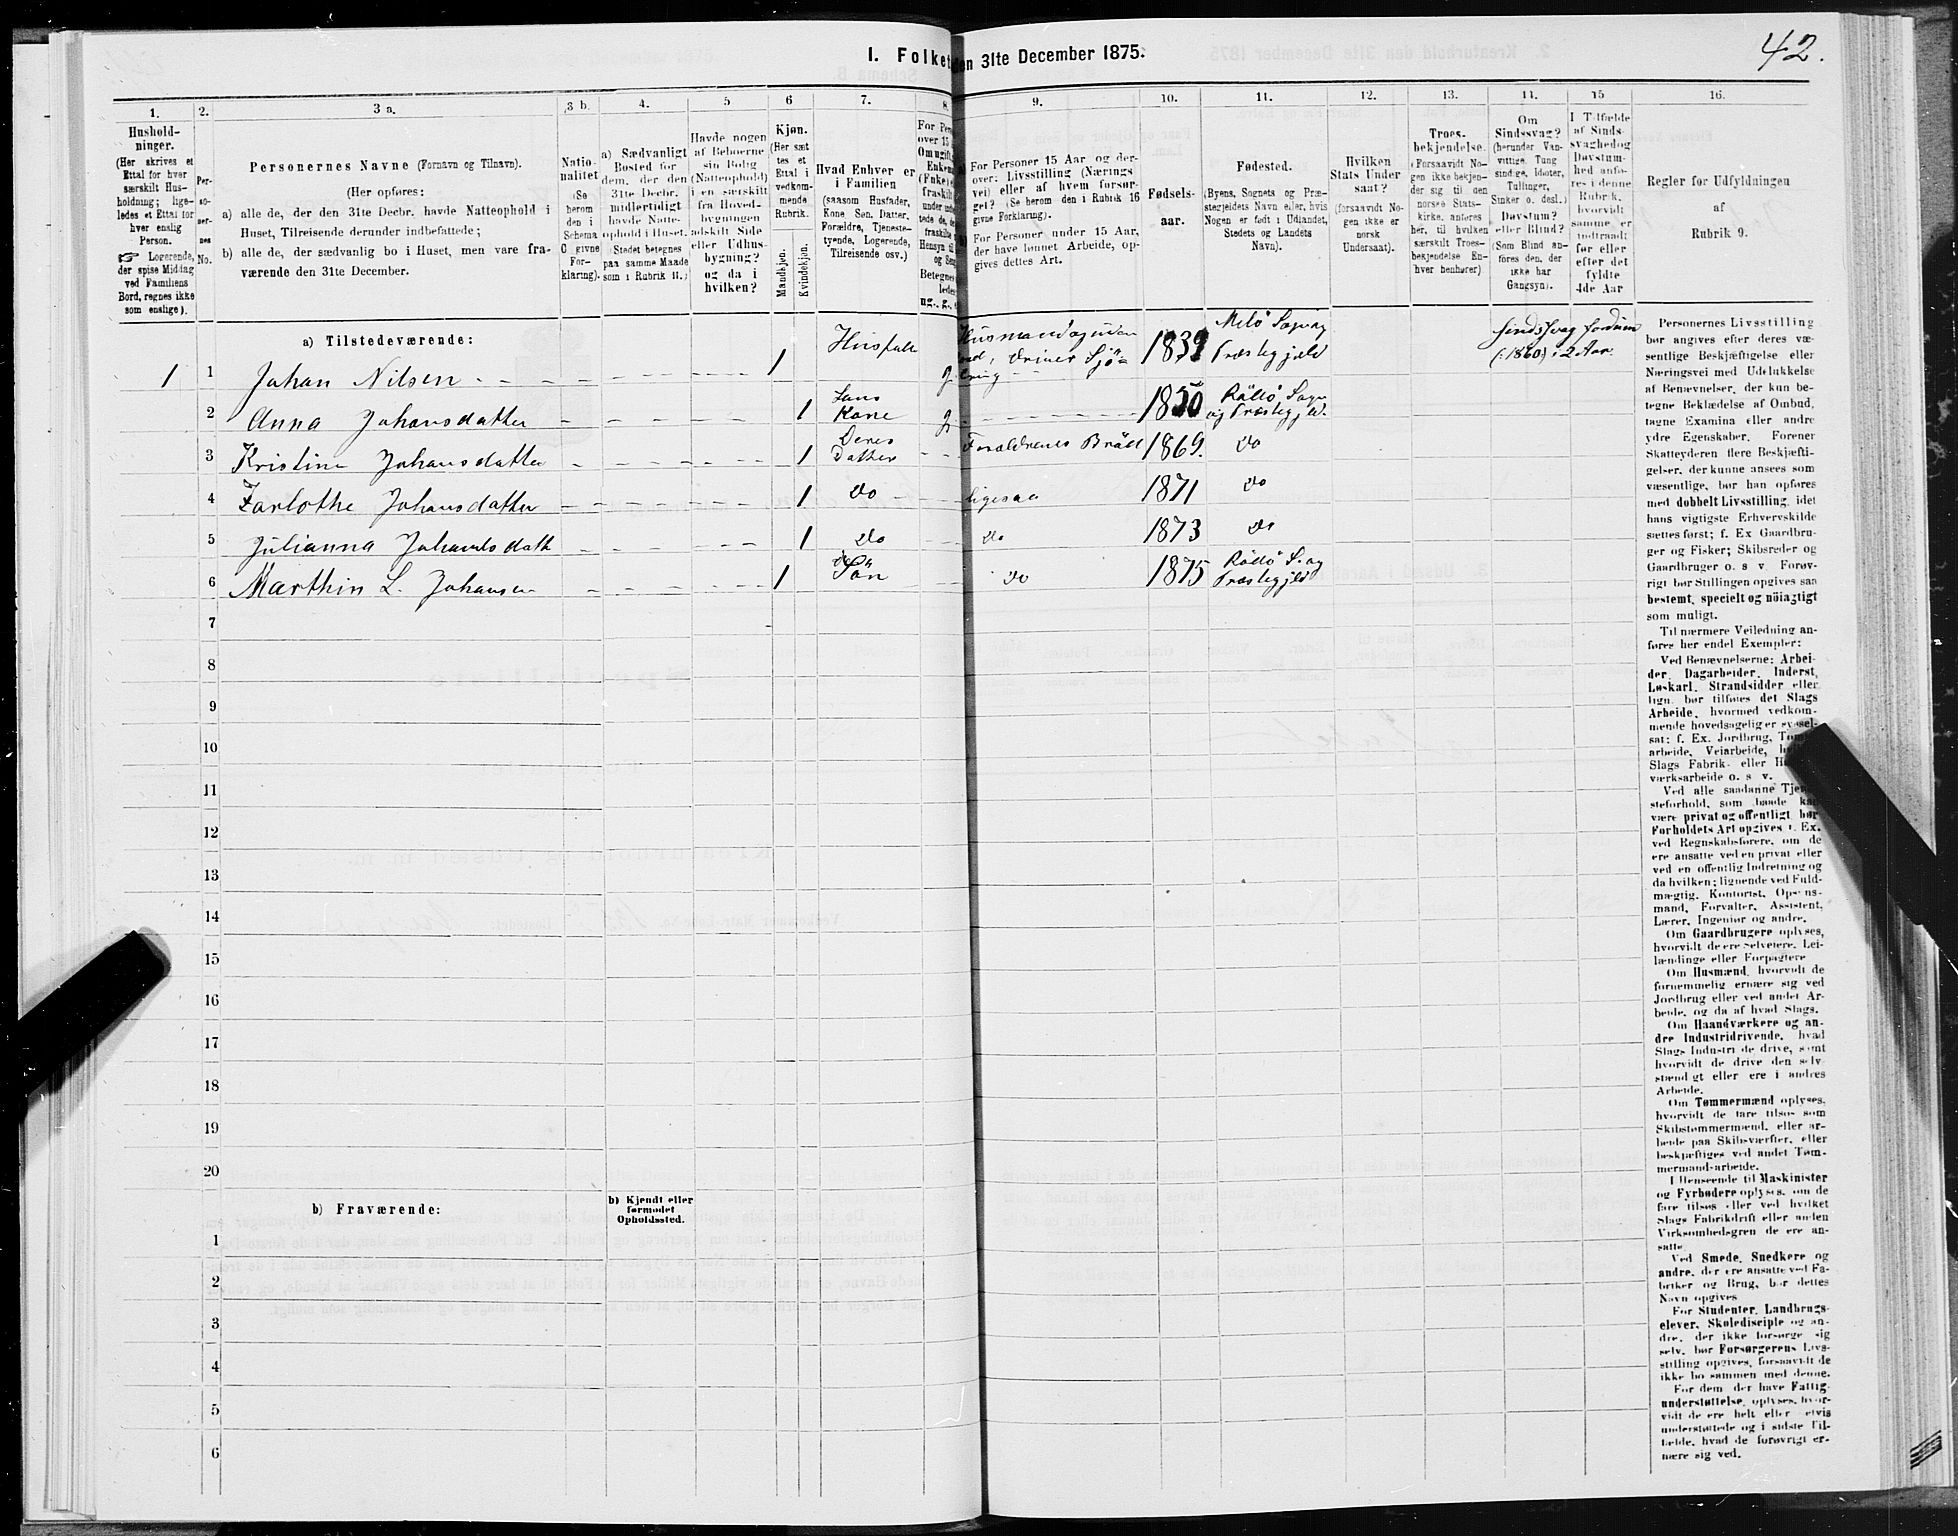 42.
I. Folket
den 31te December 1875.
1.
Hushold-
ninger.
(Her skrives et
Ettal for hver
særskilt Hus-
holdning; lige-
ledes et Ettal for
hver enslig
Person.
Logerende,
der spise Middag
ved Familiens
Bord, regnes ikke
som enslige).
2.
Per-
so-
ner-
nes
No.
3 a.
Personernes Navne (Fornavn og Tilnavn).
(Her opføres:
a) alle de, der den 31te Decbr. havde Natteophold i
Huset, Tilreisende derunder indbefattede;
b) alle de, der sædvanlig bo i Huset, men vare fra-
værende den 31te December.
3 b.
Natio-
nalitet
(Se
herom
den i
Schema
C givne
For-
klaring).
4.
a) Sædvanligt
Bosted for
dem, der den
31te Decbr.
midlertidigt
havde Natte-
ophold i Huset.
(Stedet betegnes
paa samme Maade
som i Rubrik 11.)
5
Havde nogen
af Beboerne
sin Bolig
(Natteophold)
i en særskilt
fra Hoved-
bygningen
adskilt Side
eller Udhus-
bygning?
og da i
hvilken?
6
Kjøn.
(Her sæt
tes et
Ettal i
vedkom-
mende
Rubrik.
Mandkjøn.
Kvindekjøn.
7.
Hvad Enhver er
i Familien
(saasom Husfader,
Kone Søn, Datter,
Forældre, Tjeneste-
tyende, Logerende,
Tilreisende osv.)
8.
For Pers
over 15
Omugift,
Enkem
(Fnke)
9.
For Personer 15 Aar og der-
over: Livsstilling (Nærings
vei) eller af hvem forsør-
get? (Se herom den i Rubrik 16
givne Forklaring).
For Personer under 15 Aar,
der have lønnet Arbeide, op-
gives dettes Art.
10.
Fødsels-
aar.
11.
Fødested.
(Byens, Sognets og Præ-
stegjeldets Navn eller, hvis
Nogen er født i Udlandet,
Stedets og Landets
Navn).
12.
Hvilken
Stats Under
saat?
(forsaavidt No-
gen ikke er
norsk
Undersaat).
13.
Troes-
bekjendelse.
(Forsaavidt No-
gen ikke bekjen-
der sig til den
norske Stats-
kirke, anføres
her, til hvilken
særskilt Troes-
bekjendelse En-
hver henhører)
14.
Om
Sindssvag?
(herunder Van-
vittige, Tung
sindige, Idioter,
Tullinger,
Sinker o. desl.)
Døvstum?
eller Blind?
(Som Blind an
føres den, der
ikke har
Gangsyn).
15
I Tilfælde
af Sinds-
svaghed og
Døvstum-
hed anfø-
res i denne
Rubrik,
hvorvidt
samme er
indtraadt
før eller
efter det
fyldte
4de Aar
16.
Regler for Udfyldningen
af
Rubrik 9.
a) Tilstedeværende:
1 1 Johan Nilsen 1 g. 1839 Melø Sogn og Præstegjeld Sindssvag (:1860) i 2 Aar.
2 Anna Johansdatter 1 Hans Kone g. 1850 Rödö Sogn og Præstegjeld.
3 Kristine Johansdatter 1 Deres Datter Forældrenes Bröd 1869. Do
4 Zarlothe Johansdatter 1 Do ligesaa 1871 Do
5 Julianna Johansdatt 1 Do Do 1873 Do
6 Marthin L. Johansen 1 Sön Do 1875 Rödö S. og Præstegjeld
7
8
9
10
11
12
13
14
15
16
17
18
19
20
b) Fraværende:
b) Kjendt eller
formodet
Opholdssted.
1
2
3
4
5
6
Personernes Livsstilling
bør angives efter deres væ-
sentlige Beskjæftigelse eller
Næringsvei med Udelukkelse
af Benævnelser, der kun be-
tegne Beklædelse af Ombud,
tagne Examina eller andre
ydre Egenskaber. Forener
Skatteyderen flere Beskjæfti-
gelser, der kunne ansees som
væsentlige, bør han opføres
med dobbelt Livsstilling, idet
hans vigtigste Erhvervskilde
sættes først; f. Ex Gaardbru-
ger og Fisker; Skibsreder og
Gaardbruger o. s v. Forøv-
rigt bør Stillingen opgives saa
bestemt, specielt og nöiagtigt
som muligt.
Til nærmere Veiledning an-
føres her endel Exempler:
Ved Benævnelserne: Arbei-
der, Dagarbeider, Inderst,
Løskarl, Strandsidder eller
lign. bør tilføres det Slags
Arbeide, hvormed vedkom-
mende hovedsagelig er syssel-
sat; f. Ex. Jordbrug, Tom
arbeide, Veiarbeide,
Slags Fabrik- eller H
værksarbeide o. s v.
Ved alle saadanne Tjen
steforhold, som baade kan
være privat og offentligt, bør
Forholdets Art opgives f. Ex.
ved Regnskabsførere, om de
ere ansatte ved en privat eller
ved en offentlig Indretning og
da hvilken; lignende ved Fuld-
mægtig, Kontorist, Opsyns-
mand, Forvalter, Assistent,
Lærer, Ingeniør og andre.
Om Gaardbrugere oplyses,
hvorvidt de ere Selveiere, Lei-
lændinge eller Forpagtere
Om Husmænd, hvorvidt de
fornemmelig ernære sig ved
Jordbrug eller ved andet Ar-
beide, og da af hvad Slags.
Om Haandværkere og an-
dre Industridrivende, hvad
Slags Industri de drive, samt
hvorvidt de drive den selv-
stændigt eller ere i andres
Arbeide.
Om Tømmermænd oplyses,
hvorvidt de fare tilsøs som
Skibstømmermænd, eller ar-
beide paa Skibsværfter, eller
beskjæftiges ved andet Tøm-
mermandarbeide.
I Henseende til Maskinister
og Fyrbødere oplyses, om de
fare tilsøs eller ved hvilket
Slags Fabrikdrift eller anden
Virksomhedsgren de ere an-
satte
Ved Smede, Snedkere og
andre, der ere ansatte ved Fa-
briker og Brug, bør dettes
Navn opgives
For Studenter, Landbrugs-
elever, Skoledisciple og an-
dre, der ikke forsørge sig
selv, bør Forsørgerens Livs-
stilling opgives, forsaavidt de
ikke bo sammen med denne.
For dem, der have Fattig-
understøttelse, oplyses, hvor-
vidt de ere helt eller
understøttede og i sidste Til-
fælde, hvad de forøvrigt er-
nære sig ved.